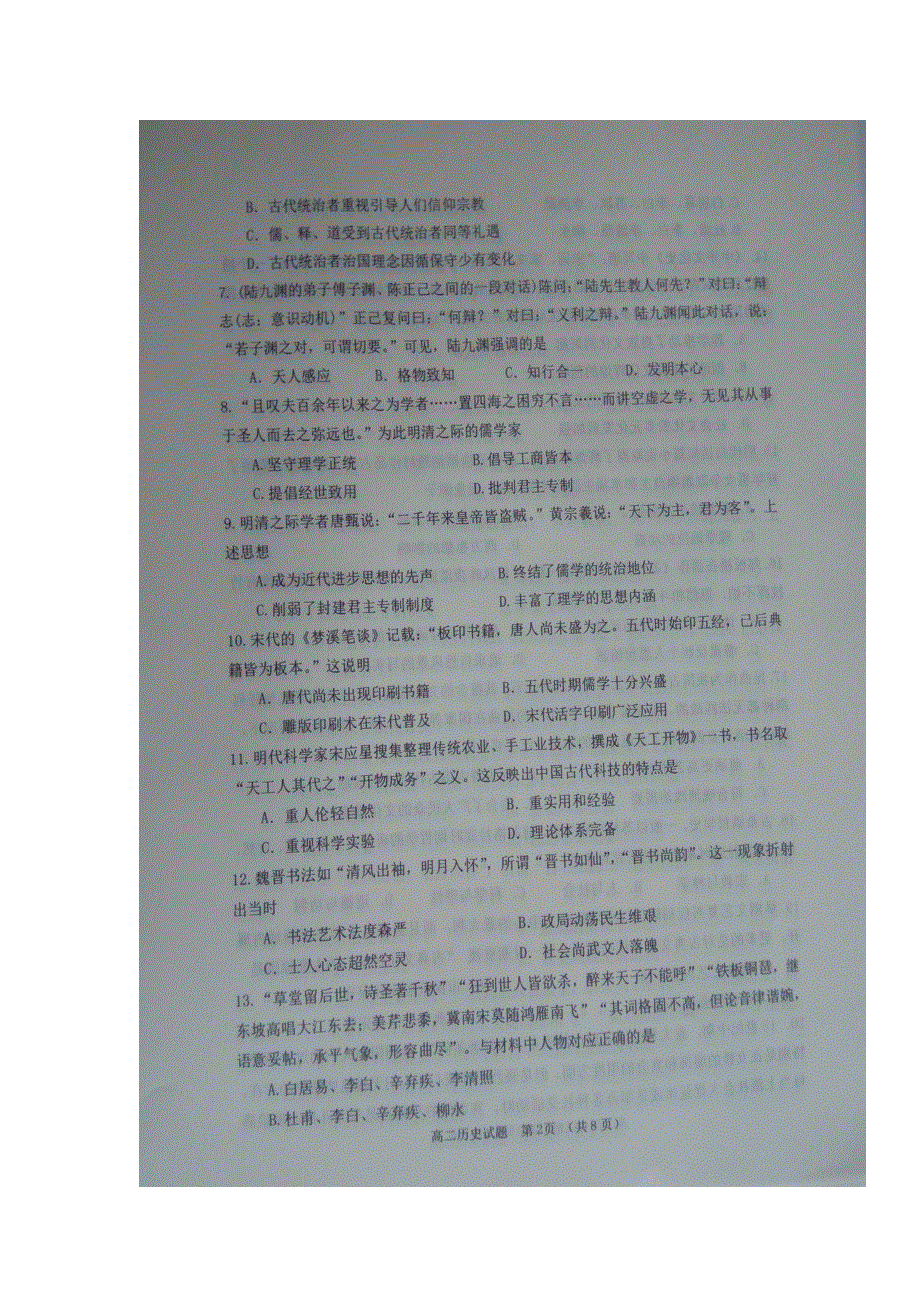 B. 古代统治者重视引导人们信仰宗教
C. 儒、释、道受到古代统治者同等礼遇
D. 古代统治者治国理念因循保守少有变化
7. (陆九渊的弟子傅子渊、陈正己之间的一段对话)陈问:“陆先生教人何先?”对曰:“辩
志(志:意识动机)”正己复问曰:“何辩?”对曰:“义利之辩。”陆九渊闻此对话，说:
“若子渊之对，可谓切要。”可见，陆九渊强调的是
A. 天人感应 B. 格物致知 C. 知行合一 D. 发明本心
8. “且叹夫百余年以来之为学者……置四海之困穷不言……而讲空虚之学，无见其从事
于圣人而去之弥远也。”为此明清之际的儒学家
A.坚守理学正统 B.倡导工商皆本
C.提倡经世致用 D.批判君主专制
9. 明清之际学者唐甄说:“二千年来皇帝皆盗贼。”黄宗羲说:“天下为主，君为客”。上
述思想
A.成为近代进步思想的先声 B.终结了儒学的统治地位
C.削弱了封建君主专制制度 D.丰富了理学的思想内涵
10. 宋代的《梦溪笔谈》记载:“板印书籍，唐人尚未盛为之。五代时始印五经，已后典
籍皆为板本。”这说明
A. 唐代尚未出现印刷书籍 B. 五代时期儒学十分兴盛
C. 雕版印刷术在宋代普及 D. 宋代活字印刷广泛应用
11. 明代科学家宋应星搜集整理传统农业、手工业技术，撰成《天工开物》一书，书名取
“天工人其代之”“开物成务”之义。这反映出中国古代科技的特点是
A. 重人伦轻自然 B. 重实用和经验
C. 重视科学实验 D. 理论体系完备
12. 魏晋书法如“清风出袖，明月入怀”，所谓“晋书如仙”，“晋书尚韵”。这一现象折射
出当时
A. 书法艺术法度森严 B. 政局动荡民生维艰
C. 士人心态超然空灵 D. 社会尚武文人落魄
13. “草堂留后世，诗圣著千秋”“狂到世人皆欲杀，醉来天子不能呼”“铁板铜琶，继
东坡高唱大江东去；美芹悲黍，冀南宋莫随鸿雁南飞”“其词格固不高，但论音律谐婉，
语意妥帖，承平气象，形容曲尽”。与材料中人物对应正确的是
A.白居易、李白、辛弃疾、李清照
B.杜甫、李白、辛弃疾、柳永
高二历史试题 第2页 (共8页)